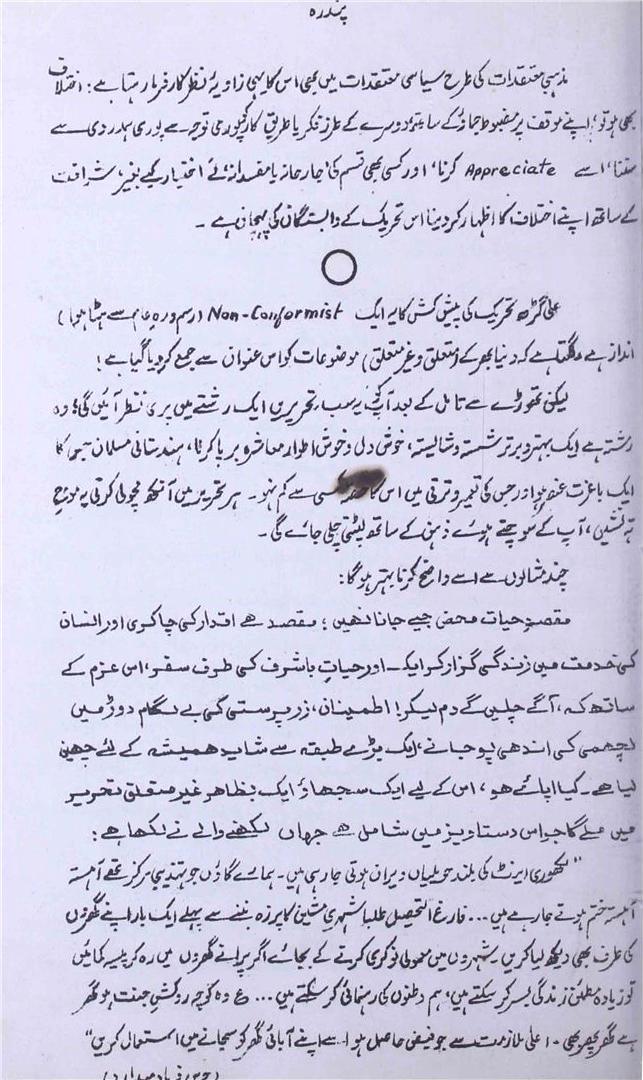 پندرہ
مذہبی معتقدات کی طرح سیاسی معتقدات میں بھی اس کا یہی زاویۂ نظر کارفرما رہتا ہے: اختلاف
بھی ہو تو، اپنے موقف پر مضبوط جماؤ کے ساتھ، دوسرے کے طرزِ تفکر یا طریقِ کار کو پوری توجہ سے پوری ہمدردی سے
سننا، اسے Appreciate کرنا، اور کسی بھی قسم کی 'جارحانہ یا مفسدانہ' لَے اختیار کیے بغیر، شرافت
کے ساتھ اپنے اختلاف کا اظہار کر دینا اس تحریک کے وابستگان کی پہچان ہے ۔
علی گڑھ تحریک کی پیش کش کا یہ ایک Non-Conformist (رسم و رہِ عام سے ہٹا ہوا)
انداز ہے۔ لگتا ہے کہ دنیا بھر کے (متعلق و غیر متعلق) موضوعات کو اس عنوان سے جمع کر دیا گیا ہے!
لیکن تھوڑے سے تامل کے بعد آپ کو یہ سب تحریریں ایک رشتے میں پروئی نظر آئیں گی؛ وہ
رشتہ ہے ایک بہتر و برتر شستہ و شائستہ، خوش دل و خوش اطوار معاشرہ برپا کرنا، ہندستانی مسلمان جس کا
ایک باعزت عنصر ہو اور جس کی تعمیر و ترقی میں اس کا حصہ کسی سے کم نہ ہو ۔ ہر تحریر میں آنکھ مچولی کرتی یہ موجِ
تہ نشیں، آپ کے سوچتے ہوئے ذہن کے ساتھ لپٹتی چلی جائے گی ۔
چند مثالوں سے اسے واضح کرنا بہتر ہوگا:
مقصدِ حیات محض جیے جانا نہیں؛ مقصد ہے اقدار کی چاکری اور انسان
کی خدمت میں زندگی گزار کر ایک اور حیاتِ باشرف کی طرف سفر، اس عزم کے
ساتھ کہ، آگے چلیں گے دم لیکر! اطمینان، زر پرستی کی بے لگام دوڑ میں
لچھمی کی اندھی پوجا نے، ایک بڑے طبقہ سے شاید ہمیشہ کے لئے چھین
لیا ہے ۔ کیا اپائے ہو، اس کے لیے ایک سجھاؤ ایک بظاہر غیر متعلق تحریر
میں ملے گا جو اس دستاویز میں شامل ہے جہاں لکھنے والے نے لکھا ہے:
"لکھوری اینٹ کی بلند حویلیاں ویران ہوتی جا رہی ہیں ۔ ہمارے گاؤں جو تہذیبی مرکز تھے آہستہ
آہستہ ختم ہوتے جا رہے ہیں ... فارغ التحصیل طلبا شہری مشین کا پرزہ بننے سے پہلے ایک بار اپنے گھروں
کی طرف بھی دیکھ لیا کریں ۔ شہروں میں معمولی نوکری کرنے کے بجائے اگر پرانے گھروں میں رہ کر پیسہ کمائیں
تو زیادہ مطمئن زندگی بسر کر سکتے ہیں، ہم وطنوں کی رہنمائی کر سکتے ہیں ... ع وہ کوچہ روکشِ جنت ہو گھر
ہے گھر پھر بھی ۔ اعلیٰ ملازمت سے جو فیض حاصل ہو اسے اپنے آبائی گھر کو سجانے میں استعمال کریں"